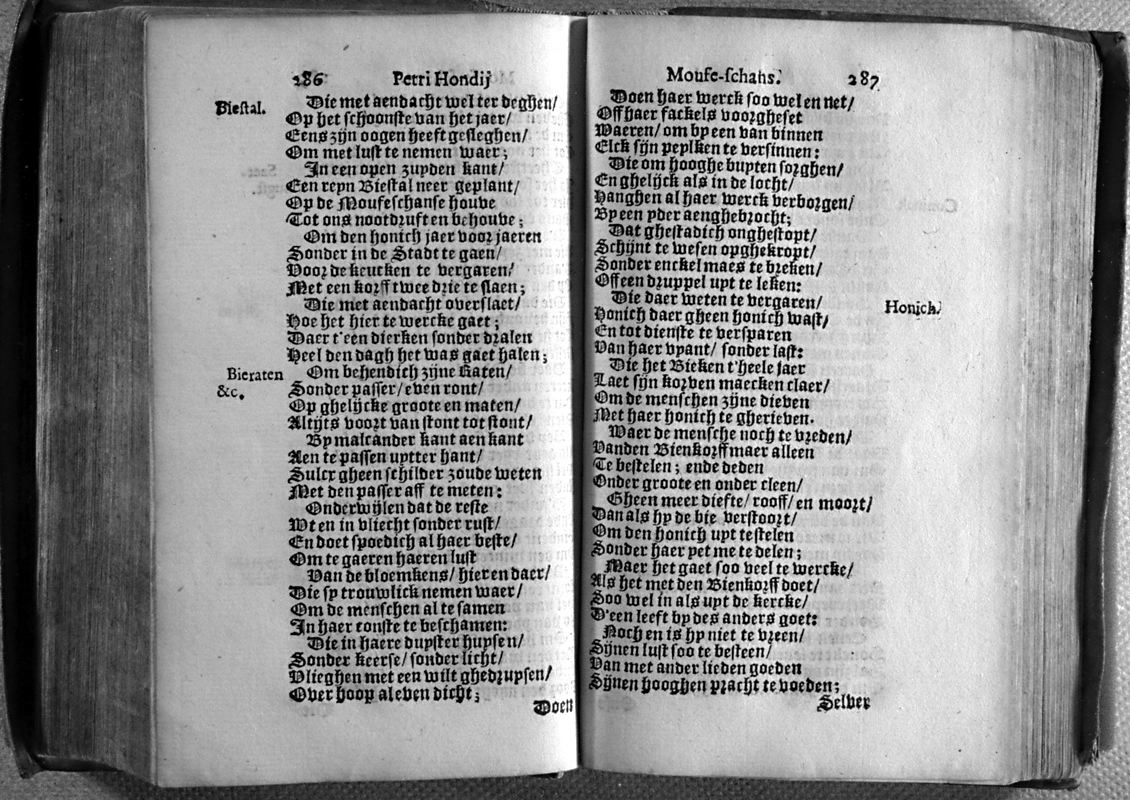 286 Petri Hondij
Biestal.
Die met aendacht wel ter deghen/
Op het schoonste van het jaer/
Eens zijn oogen heeft gesleghen/
Om met lust te nemen waer;
In een open zuyden kant/
Een reyn Biestal neer geplant/
Op de Moufeschanse houve
Tot ons nootdruft en behouve;
Om den honich jaer voor jaeren
Sonder in de Stadt te gaen/
Voor de keucken te vergaren/
Met een korff twee drie te slaen;
Die met aendacht overslaet/
Hoe het hier te wercke gaet;
Daer t'een dierken sonder dralen
Heel den dagh het was gaet halen;
Bieraten
&c.
Om behendich zijne Raten/
Sonder passer/ even ront/
Op ghelijcke groote en maten/
Altijts voort van stont tot stont/
By malcander kant aen kant
Aen te passen uytter hant/
Sulcx gheen schilder zoude weten
Met den passer aff te meten:
Onderwijlen dat de reste
Wt en in vliecht sonder rust/
En doet spoedich al haer beste/
Om te gaeren haeren lust
Van de bloemkens/ hier en daer/
Die sy trouwlick nemen waer/
Om de menschen al te samen
In haer conste te beschamen:
Die in haere duyster huysen/
Sonder keerse/ sonder licht/
Vlieghen met een wilt ghedruysen/
Over hoop aleven dicht;
Doen
Moufe-schans. 287
Doen haer werck soo wel en net/
Off haer fackels voorgheset
Waeren/ om by een van binnen
Elck sijn peylken te versinnen:
Die om hooghe buyten sorghen/
En ghelijck als in de locht/
Hanghen al haer werck verborgen/
By een yder aenghebrocht;
Dat ghestadich onghestopt/
Schijnt te wesen opghekropt/
Sonder enckel maes te breken/
Off een druppel uyt te leken:
Die daer weten te vergaren/
Honich.
Honich daer gheen honich wast/
En tot dienste te versparen
Van haer vyant/ sonder last:
Die het Bieken t'heele jaer
Laet sijn korven maecken claer/
Om de menschen zijne dieven
Met haer honich te gherieven.
Waer de mensche noch te vreden/
Vanden Bienkorff maer alleen
Te bestelen; ende deden
Onder groote en onder cleen/
Gheen meer diefte/ rooff/ en moort/
Dan als hy de bie verstoort/
Om den honich uyt te stelen
Sonder haer yet me te delen;
Maer het gaet soo veel te wercke/
Als het met den Bienkorff doet/
Soo wel in als uyt de kercke/
D'een leeft by des anders goet:
Noch en is hy niet te vreen/
Sijnen lust soo te besteen/
Van met ander lieden goeden
Sijnen hooghen pracht te voeden;
Selver